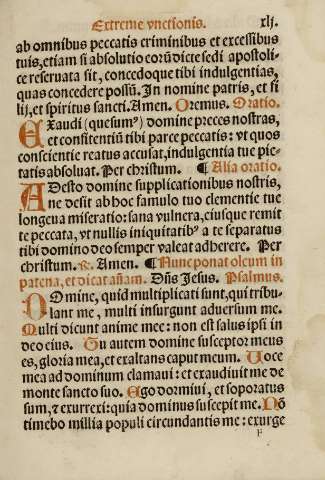 Extreme vnctionis. xlj.
ab omnibus peccatis criminibus et excessibus
tuis, etiam si absolutio eorũ dicte sedi apostoli-
ce reseruata sit, concedoque tibi indulgentias,
quas concedere possũ. In nomine patris, et fi
lij, et spiritus sancti. Amen. Oremus. Oratio.
EXaudi (quesumꝰ) domine preces nostras,
et confitentiũ tibi parce peccatis: vt quos
conscientie reatus accusat, indulgentia tue pie-
tatis absoluat. Per christum. ¶ Alia oratio.
ADesto domine supplicationibus nostris,
ne desit ab hoc famulo tuo clementie tue
longeua miseratio: sana vulnera, eiusque remit
te peccata, vt nullis iniquitatibꝰ a te separatus
tibi domino deo semper valeat adherere. Per
christum. ⁊c. Amen. ¶ Nunc ponat oleum in
patena, et dicat añam. Dñs Jesus. Psalmus.
DOmine, quid multiplicati sunt, qui tribu-
lant me, multi insurgunt aduersum me.
Multi dicunt anime mee: non est salus ipsi in
deo eius. Tu autem domine susceptor meus
es, gloria mea, et exaltans caput meum. Uoce
mea ad dominum clamaui: et exaudiuit me de
monte sancto suo. Ego dormiui, et soporatus
sum, ⁊ exurrexi: quia dominus suscepit me. Nõ
timebo millia populi circundantis me: exurge
F